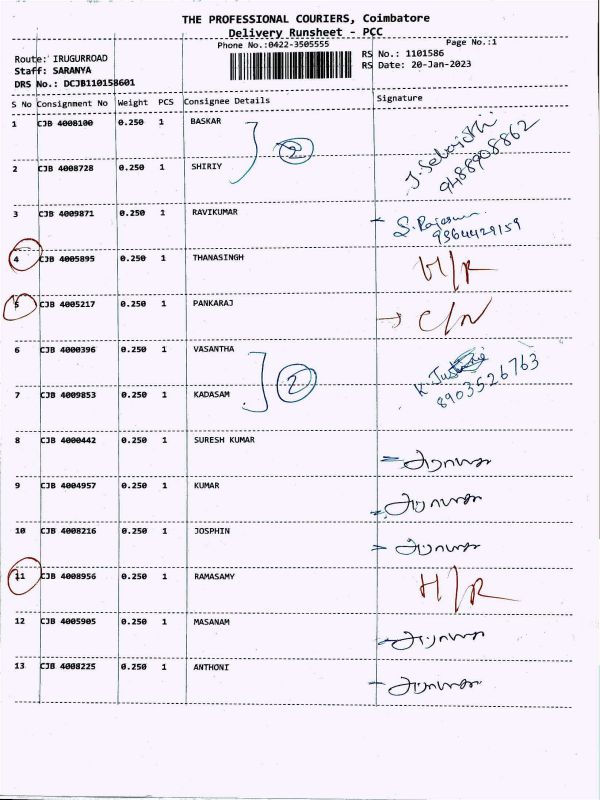 THE PROFESSIONAL COURIERS, Coimbatore
Delivery Runsheet - PCC
Phone No.:0422-3505555
Page No.:1
Route: IRUGURROAD
RS No.: 1101586
Staff: SARANYA
RS Date: 20-Jan-2023
DRS No.: DCJB110158601
S No Consignment No Weight PCS Consignee Details Signature
1 CJB 4008100 0.250 1 BASKAR
2
2 CJB 4008728 0.250 1 SHIRIY
9488908862
3 CJB 4009871 0.250 1 RAVIKUMAR
9364429159
4 CJB 4005895 0.250 1 THANASINGH
5 CJB 4005217 0.250 1 PANKARAJ C/N
6 CJB 4000396 0.250 1 VASANTHA
2
7 CJB 4009853 0.250 1 KADASAM
8903526763
8 CJB 4000442 0.250 1 SURESH KUMAR
9 CJB 4004957 0.250 1 KUMAR
10 CJB 4008216 0.250 1 JOSPHIN
11 CJB 4008956 0.250 1 RAMASAMY H/R
12 CJB 4005905 0.250 1 MASANAM
13 CJB 4008225 0.250 1 ANTHONI